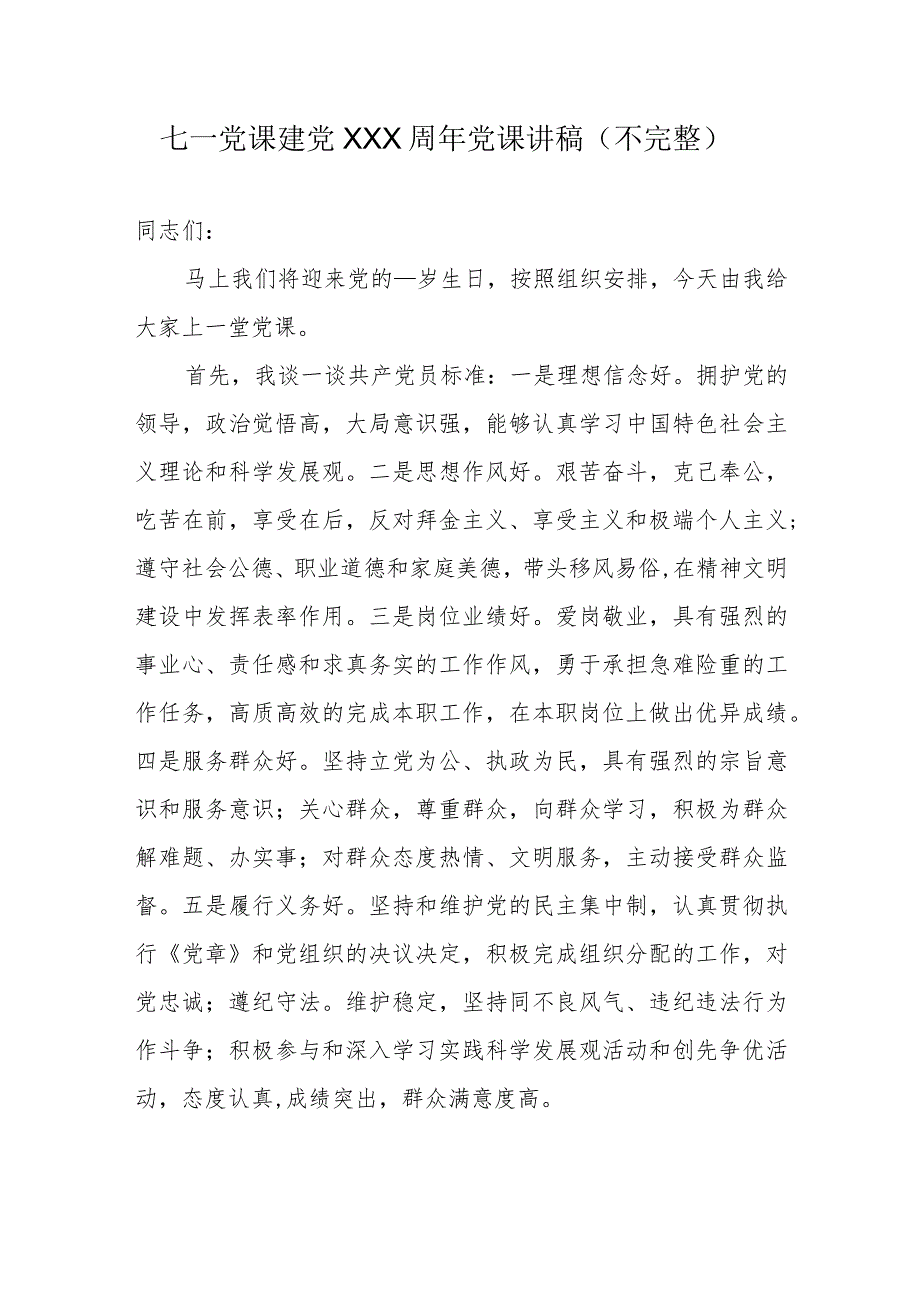 七一党课建党XXX周年党课讲稿（不完整）
同志们：
马上我们将迎来党的—岁生日，按照组织安排，今天由我给
大家上一堂党课。
首先，我谈一谈共产党员标准：一是理想信念好。拥护党的
领导，政治觉悟高，大局意识强，能够认真学习中国特色社会主
义理论和科学发展观。二是思想作风好。艰苦奋斗，克己奉公，
吃苦在前，享受在后，反对拜金主义、享受主义和极端个人主义；
遵守社会公德、职业道德和家庭美德，带头移风易俗,在精神文明
建设中发挥表率作用。三是岗位业绩好。爱岗敬业，具有强烈的
事业心、责任感和求真务实的工作作风，勇于承担急难险重的工
作任务，高质高效的完成本职工作，在本职岗位上做出优异成绩。
四是服务群众好。坚持立党为公、执政为民，具有强烈的宗旨意
识和服务意识；关心群众，尊重群众，向群众学习，积极为群众
解难题、办实事；对群众态度热情、文明服务，主动接受群众监
督。五是履行义务好。坚持和维护党的民主集中制，认真贯彻执
行《党章》和党组织的决议决定，积极完成组织分配的工作，对
党忠诚；遵纪守法。维护稳定，坚持同不良风气、违纪违法行为
作斗争；积极参与和深入学习实践科学发展观活动和创先争优活
动，态度认真,成绩突出，群众满意度高。